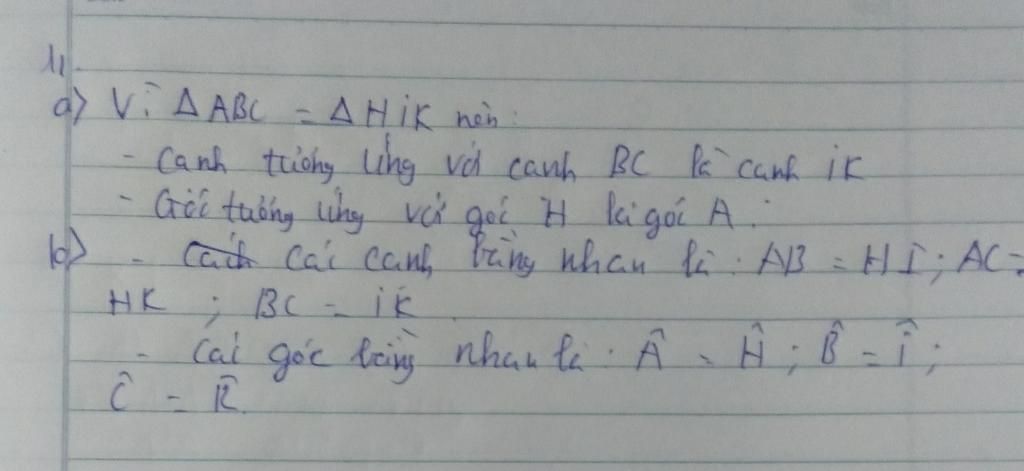 11
a) Vì ΔABC = ΔHiK nên:
- Cạnh tương ứng với cạnh BC là cạnh iK
- Góc tương ứng với góc H là góc A.
b) - Các cạnh bằng nhau là: AB = HI; AC =
HK ; BC = iK
- Các góc bằng nhau là: Â = Ĥ; B̂ = î;
Ĉ = K̂.